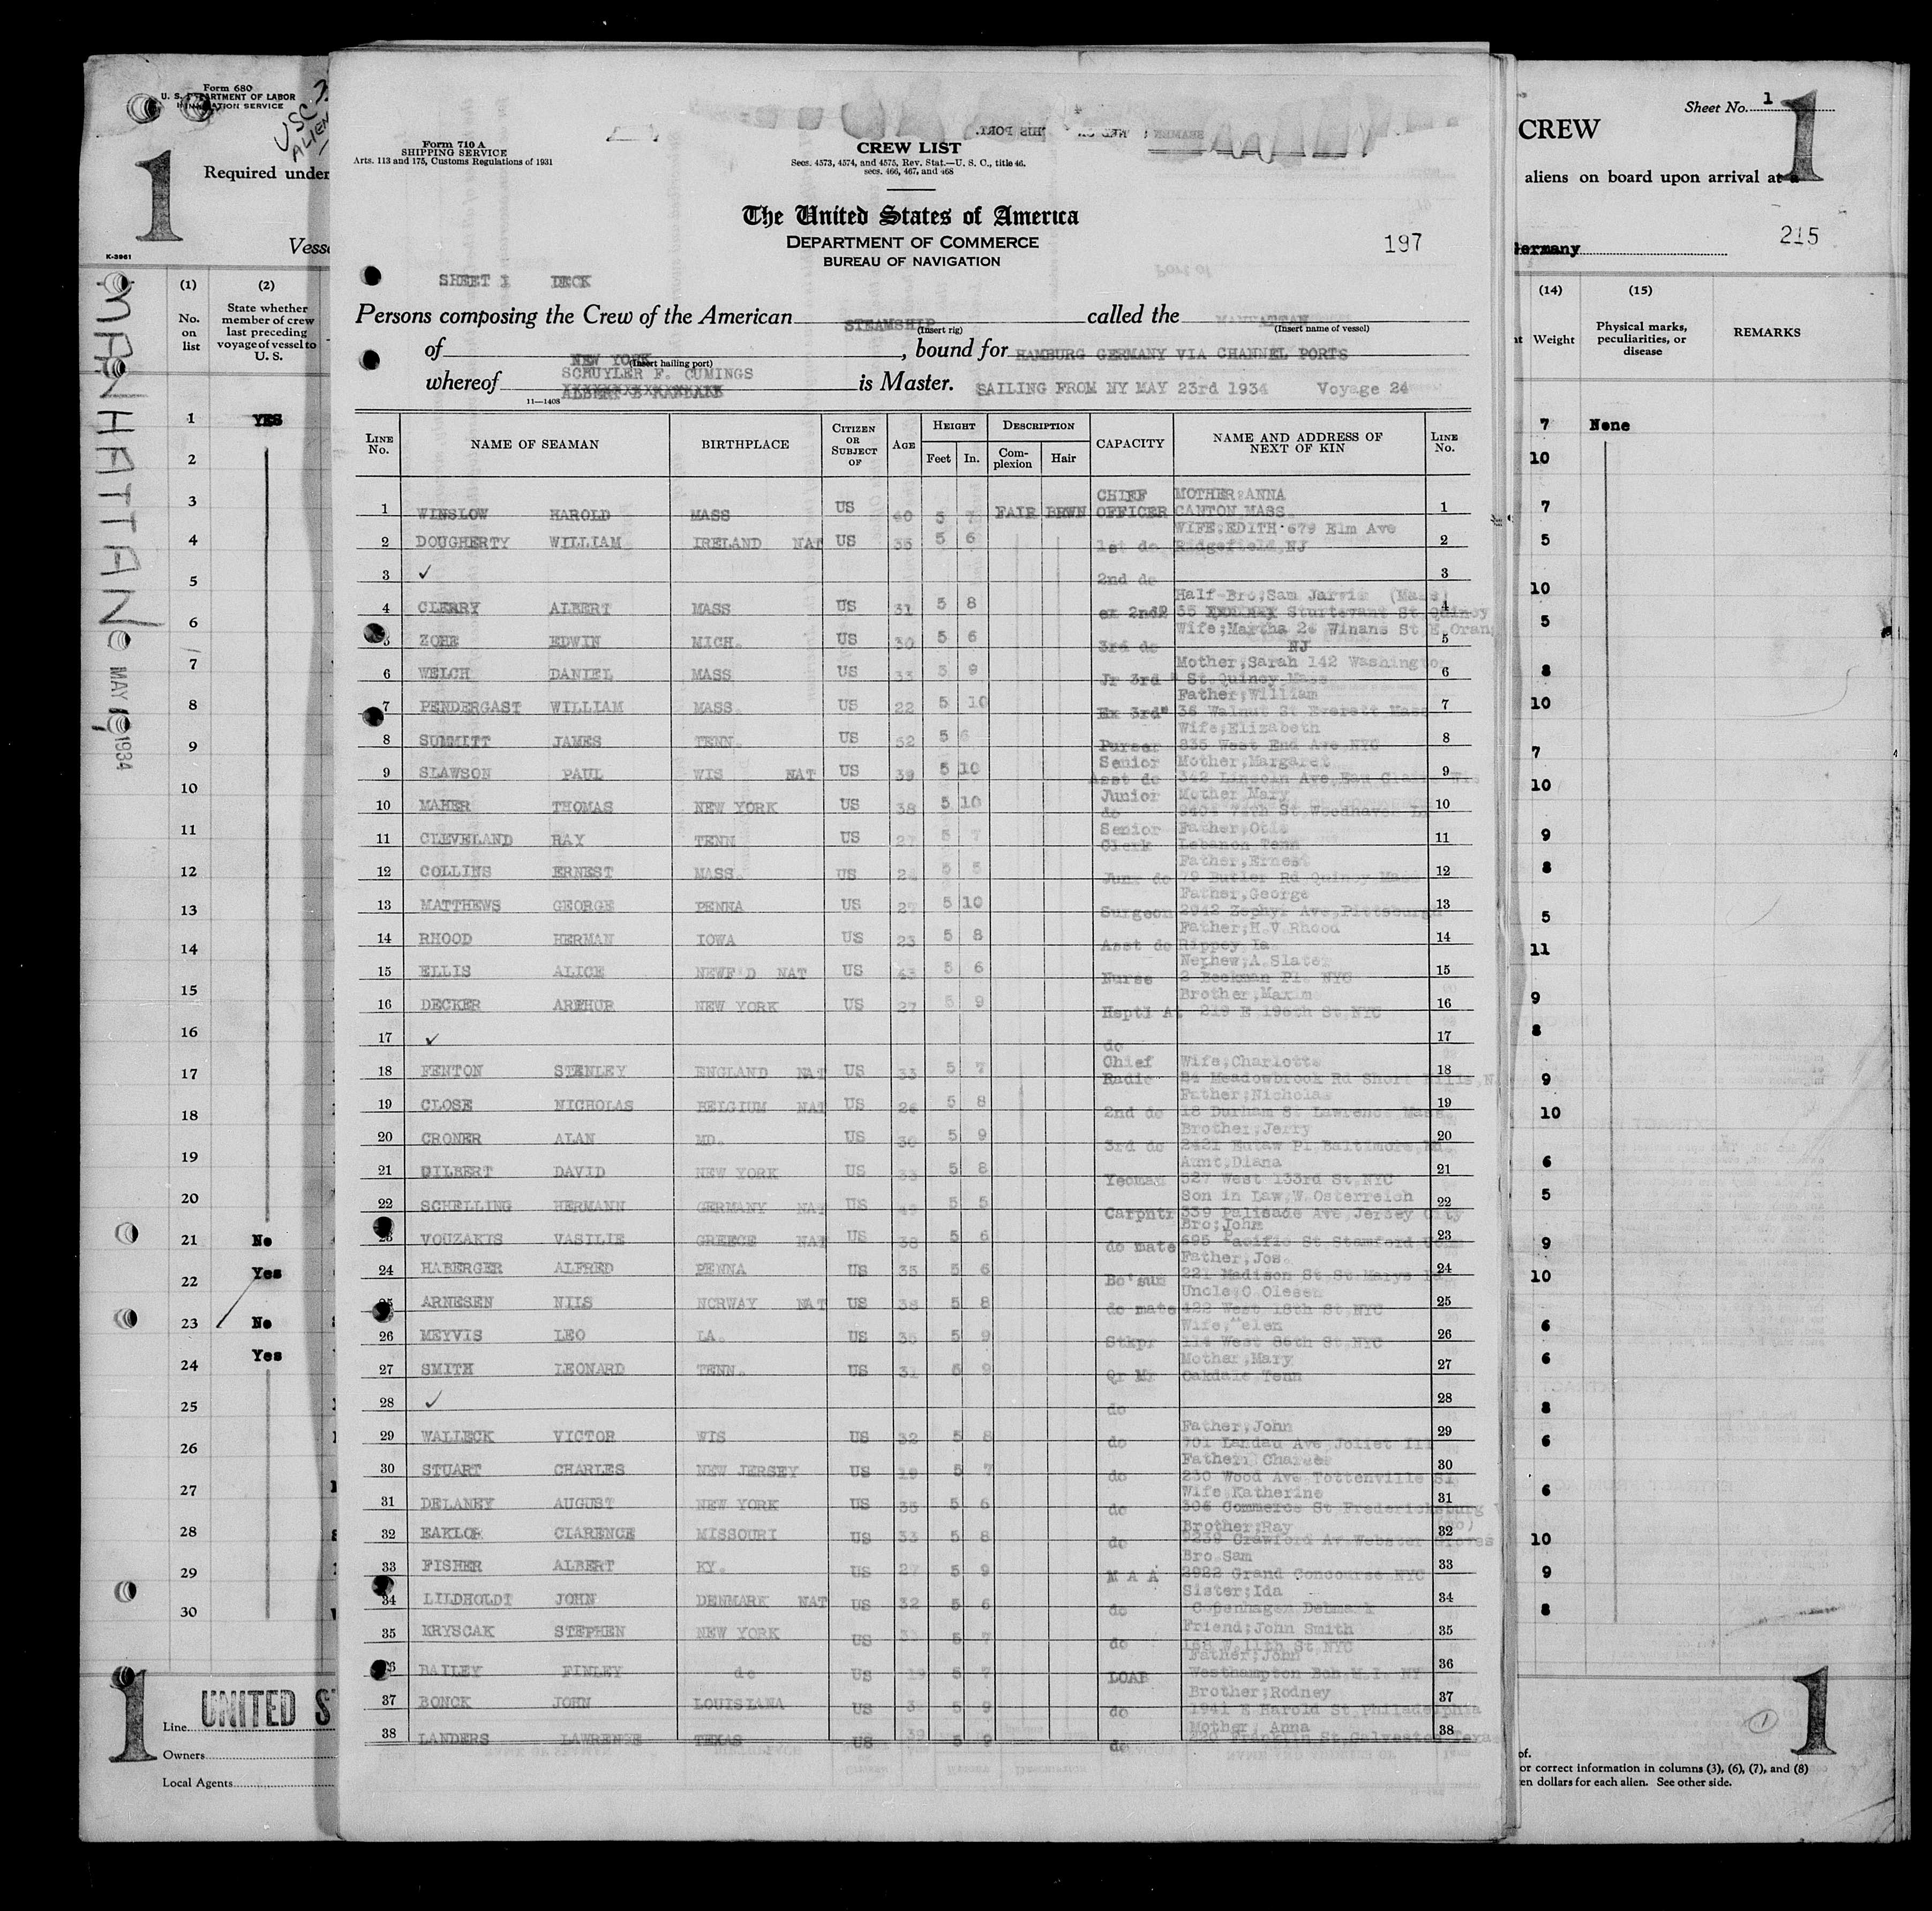 Form 680
U. S. DEPARTMENT OF LABOR
IMMIGRATION SERVICE
USC
ALIEN
1
Required under
Vess
K-3961
MANHATTAN
MAY 1934
(1) (2)
No. on list
State whether member of crew last preceding voyage of vessel to U. S.
1 YES
2
3
4
5
6
7
8
9
10
11
12
13
14
15
16
17
18
19
20
21 No
22 Yes
23 No
24 Yes
25
26
27
28
29
30
1
UNITED S
Line
Owners
Local Agents
Form 710 A
SHIPPING SERVICE
Arts. 113 and 175, Customs Regulations of 1931
CREW LIST
Secs. 4573, 4574, and 4575, Rev. Stat.—U. S. C., title 46.
secs. 466, 467, and 468
The United States of America
DEPARTMENT OF COMMERCE
BUREAU OF NAVIGATION
197
SHEET 1 DECK
Persons composing the Crew of the American STEAMSHIP called the MANHATTAN
(Insert rig) (Insert name of vessel)
of NEW YORK, bound for HAMBURG GERMANY VIA CHANNEL PORTS
(Insert hailing port)
SCHUYLER F. CUMINGS
whereof is Master. SAILING FROM NY MAY 23rd 1934 Voyage 24
11—1408
LINE No. NAME OF SEAMAN BIRTHPLACE CITIZEN OR SUBJECT OF AGE HEIGHT Feet In. DESCRIPTION Complexion Hair CAPACITY NAME AND ADDRESS OF NEXT OF KIN LINE No.
1 WINSLOW HAROLD MASS US 40 5 7 FAIR BRWN CHIEF OFFICER MOTHER:ANNA CANTON,MASS. 1
2 DOUGHERTY WILLIAM IRELAND NAT US 35 5 6 1st do WIFE,EDITH 679 Elm Ave Ridgefield,NJ 2
3 ✓ 2nd do 3
4 CLERRY ALBERT MASS US 31 5 8 ex 2nd Half-Bro;Sam Jarvis (Mass) 35 Sturtevant St Quincy 4
5 ZOHE EDWIN MICH. US 30 5 6 3rd do Wife;Martha 24 Winans St E.Orang NJ 5
6 WELCH DANIEL MASS US 33 5 9 Jr 3rd " Mother,Sarah 142 Washington St.Quincy Mass 6
7 PENDERGAST WILLIAM MASS. US 22 5 10 Ex 3rd" Father;William 36 Walnut St Everett Mass 7
8 SUMMITT JAMES TENN. US 52 5 6 Purser Wife;Elizabeth 835 West End Ave NYC 8
9 SLAWSON PAUL WIS NAT US 39 5 10 Senior Asst do Mother,Margaret 342 Lincoln Ave,Eau Claire Wis 9
10 MAHER THOMAS NEW YORK US 38 5 10 Junior do Mother Mary 74th St Woodhaven L 10
11 CLEVELAND RAY TENN US 27 5 7 Senior Clerk Father,Otis Lebanon Tenn 11
12 COLLINS ERNEST MASS. US 24 5 5 Junr do Father,Ernest 79 Butler Rd Quincy Mass 12
13 MATTHEWS GEORGE PENNA US 27 5 10 Surgeon Father,George 2942 Zephyr Ave,Pittsburgh 13
14 RHOOD HERMAN IOWA US 23 5 8 Asst do Father;H.V.Rhood Rippey Ia 14
15 ELLIS ALICE NEWF'D NAT US 43 5 6 Nurse Nephew;A.Slater 2 Beekman Pl. NYC 15
16 DECKER ARTHUR NEW YORK US 27 5 9 Hsptl At Brother,Maxim 219 E 196th St,NYC 16
17 ✓ do 17
18 FENTON STENLEY ENGLAND NAT US 33 5 7 Chief Radio Wife;Charlotte 24 Meadowbrook Rd Short Hills,N. 18
19 CLOSE NICHOLAS BELGIUM NAT US 26 5 8 2nd do Father;Nicholas 18 Durham St Lawrence Mass. 19
20 CRONER ALAN MD. US 30 5 9 3rd do Brother,Jerry 2421 Eutaw Pl Baltimore,Md. 20
21 GILBERT DAVID NEW YORK US 33 5 8 Yeoman Aunt,Diana 527 West 133rd St,NYC 21
22 SCHELLING HERMANN GERMANY NAT US 49 5 5 Carpntr Son in Law,W.Osterreich 339 Palisade Ave,Jersey City 22
23 VOUZAKIS VASILIE GREECE NAT US 38 5 6 do mate Bro;John 695 Pacific St Stamford Conn 23
24 HABERGER ALFRED PENNA US 35 5 6 Bo'sun Father,Jos. 221 Madison St.St Marys Pa 24
25 ARNESEN NIIS NORWAY NAT US 38 5 8 do mate Uncle;C.Olesen 422 West 18th St,NYC 25
26 MEYVIS LEO LA. US 35 5 9 Stkpr Wife,Helen 114 West 86th St,NYC 26
27 SMITH LEONARD TENN. US 31 5 9 Qr Mr Mother,Mary Oakdale Tenn 27
28 ✓ do 28
29 WALLECK VICTOR WIS US 32 5 8 do Father,John 701 Landau Ave Joliet Ill 29
30 STUART CHARLES NEW JERSEY US 19 5 7 do Father; Charles 230 Wood Ave Tottenville SI. 30
31 DELANEY AUGUST NEW YORK US 35 5 6 do Wife Katherine 306 Commerce St Fredericksburg V 31
32 EAKLOR CIARENCE MISSOURI US 33 5 8 do Brother;Ray 9239 Crawford Av Webster Groves 32
33 FISHER ALBERT KY. US 27 5 9 M A A Bro Sam 2922 Grand Concourse NYC 33
34 LILDHOLDT JOHN DENMARK NAT US 32 5 6 do Sister;Ida Copenhagen Debmark 34
35 KRYSCAK STEPHEN NEW YORK US 33 5 7 do Friend;John Smith 168 W.11th St NYC 35
36 BAILEY FINLEY do US 19 5 7 LOAB Father;John Westhampton Bch,M.I. NY 36
37 BONCK JOHN LOUISIANA US 5 9 do Brother;Rodney 1941 E Harold St Philadelphia 37
38 LANDERS LAWRENCE TEXAS US 39 5 9 do Mother; Anna 220 Franklin St,Galveston Texas 38
Sheet No. 1
1
CREW
aliens on board upon arrival at a
Germany
215
(14) (15)
Weight
Physical marks, peculiarities, or disease
REMARKS
7 None
10
7
5
10
5
8
10
7
10
9
8
5
11
9
8
9
10
6
5
9
10
6
6
8
6
6
10
9
8
1
1
of.
or correct information in columns (3), (6), (7), and (8)
en dollars for each alien. See other side.